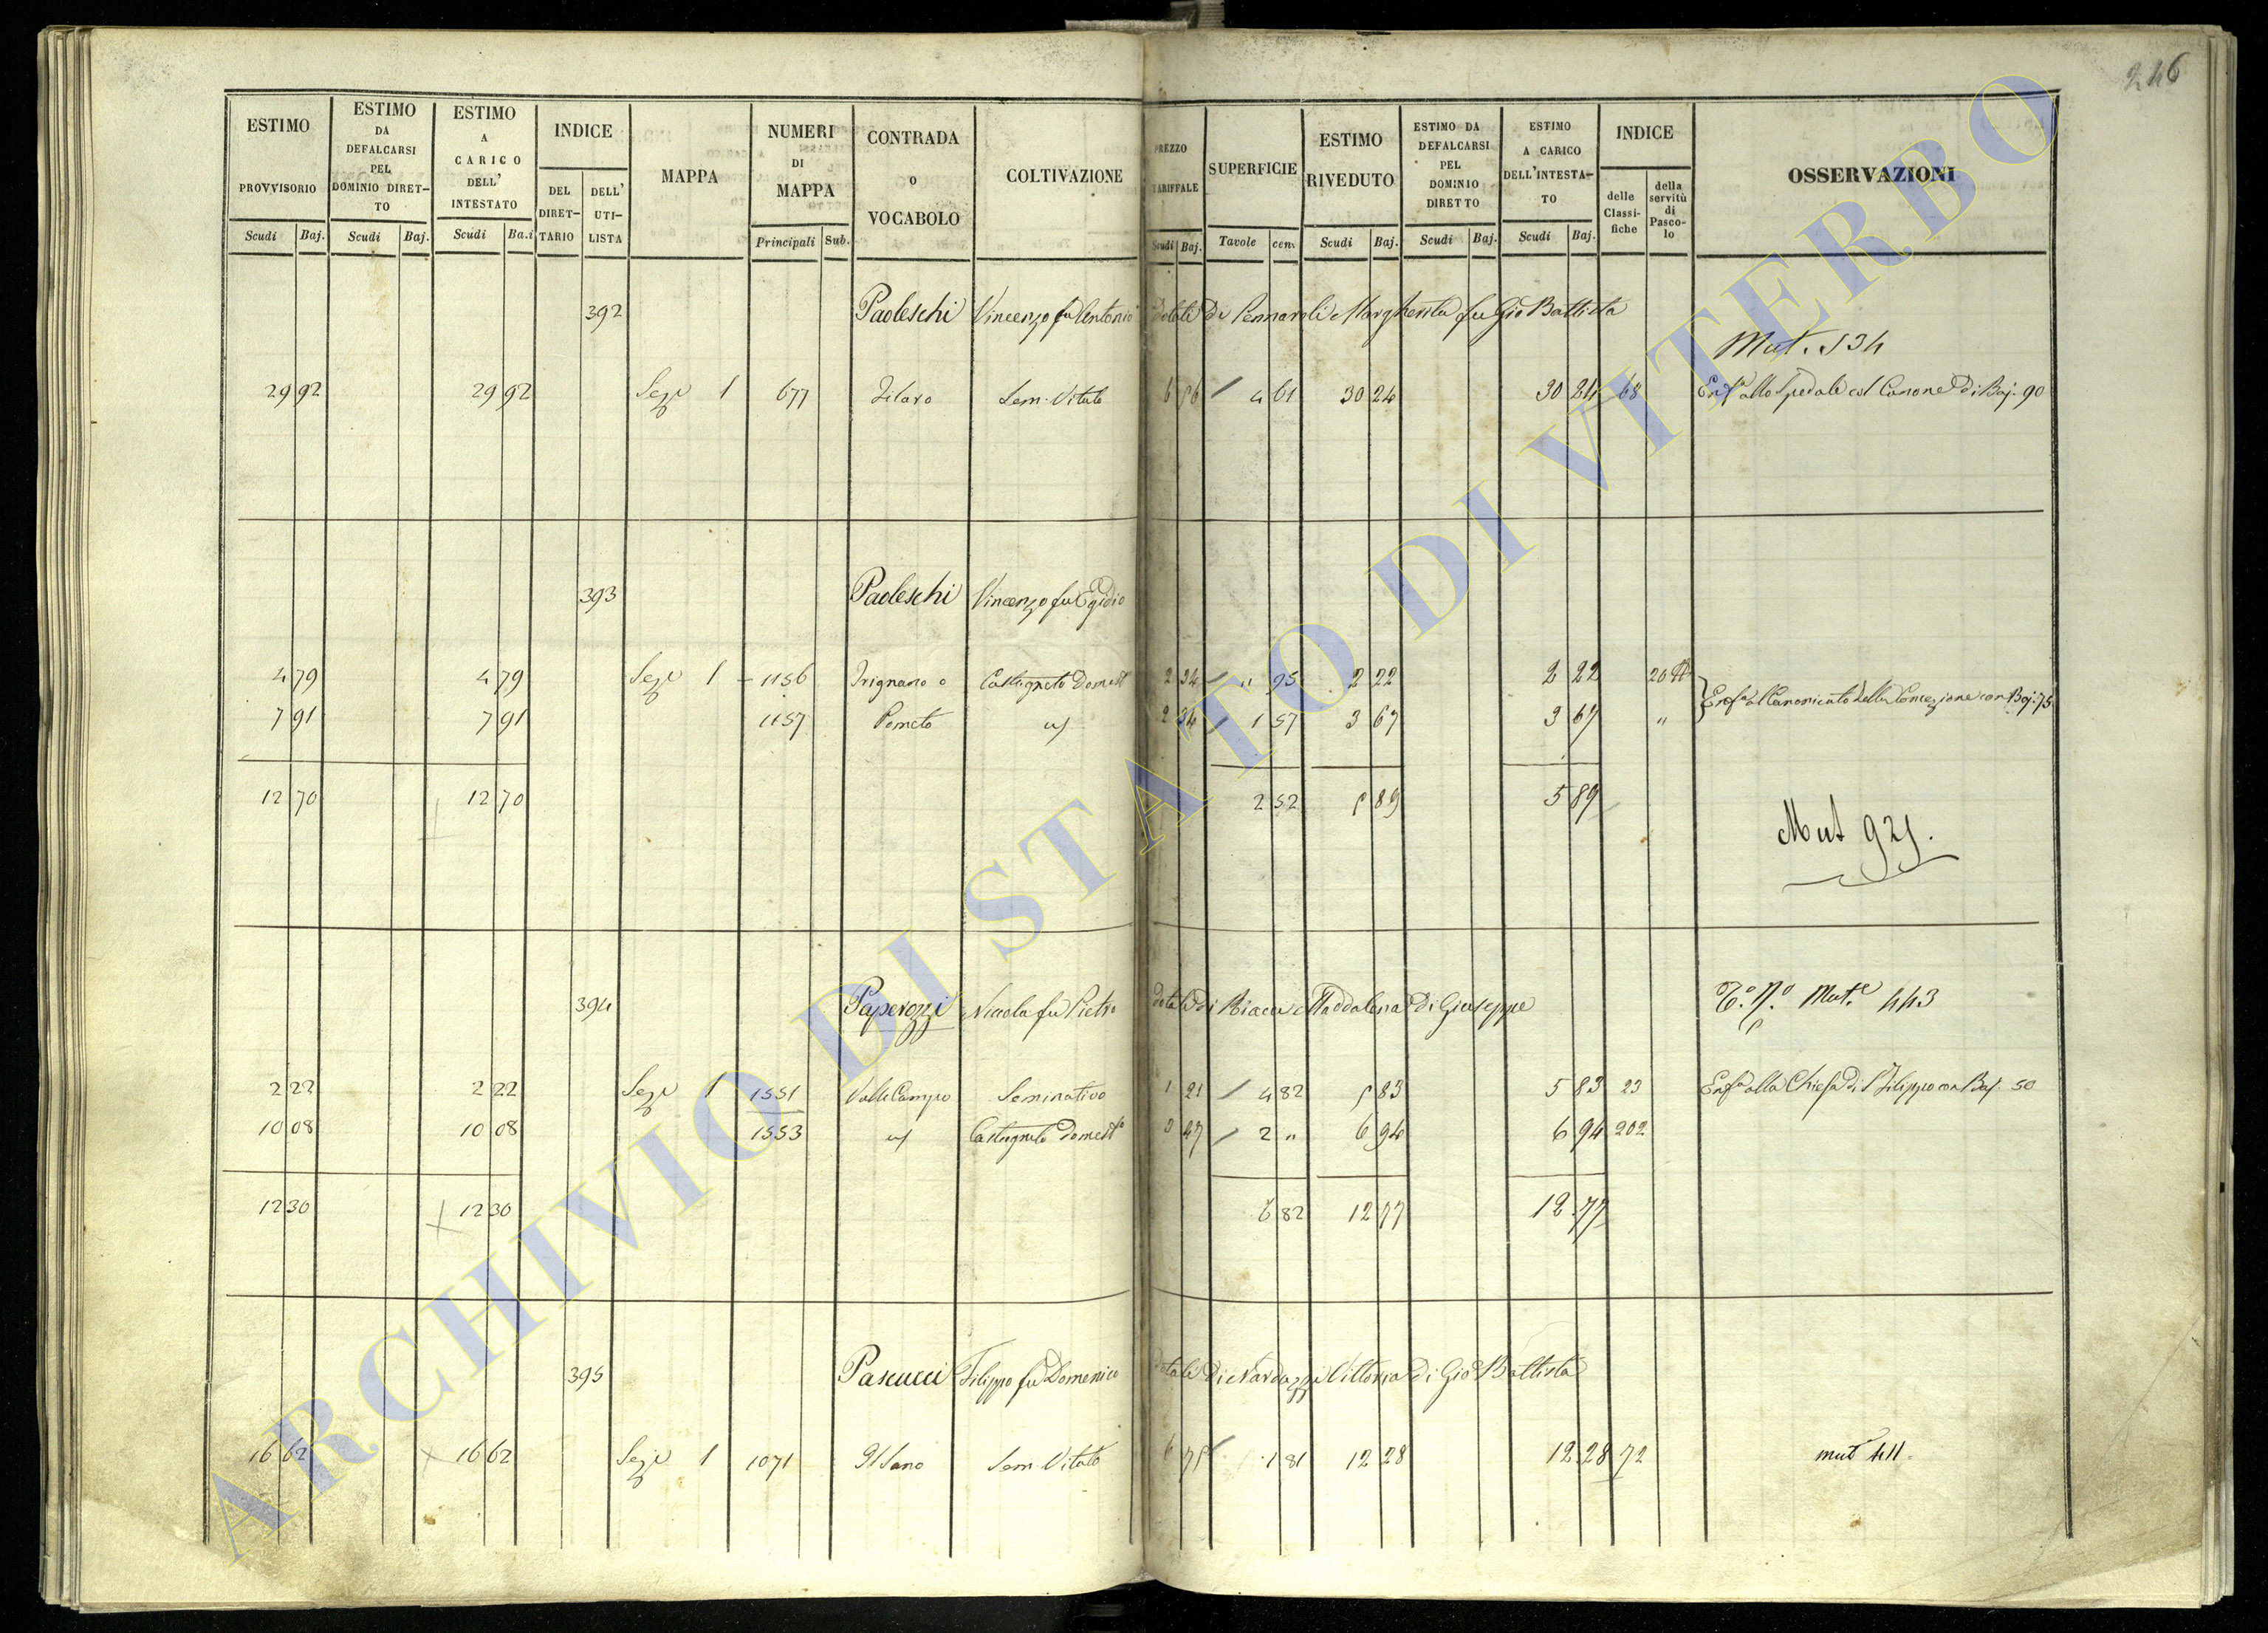 246
ESTIMO PROVVISORIO Scudi Baj.
ESTIMO DA DEFALCARSI PEL DOMINIO DIRETTO Scudi Baj.
ESTIMO A CARICO DELL' INTESTATO Scudi Ba.i
INDICE DEL DIRETTARIO DELL' UTILISTA
MAPPA
NUMERI DI MAPPA Principali Sub.
CONTRADA O VOCABOLO
COLTIVAZIONE
PREZZO TARIFFALE Scudi Baj.
SUPERFICIE Tavole cen.
ESTIMO RIVEDUTO Scudi Baj.
ESTIMO DA DEFALCARSI PEL DOMINIO DIRETTO Scudi Baj.
ESTIMO A CARICO DELL'INTESTATO Scudi Baj.
INDICE delle Classifiche della servitù di Pascolo
OSSERVAZIONI
392 Paoleschi Vincenzo fu Antonio dotale di Pennaroli Margherita fu Gio Battista
Mut. 534
29 92 29 92 Sez.e 1 677 Filaro Sem. Vitato 6 56 4 61 30 24 30 24 68 Enf.a allo Spedale col Canone di Baj. 90
393 Paoleschi Vincenzo fu Egidio
4 79 4 79 Sez.e 1 1156 Trignano o Castagneto Domest.o 2 34 " 95 2 22 2 22 20
7 91 7 91 1157 Pometo id 2 34 1 57 3 67 3 67 " Enf.a al Canonicato della Concezione con Baj. 75
12 70 12 70 2 52 5 89 5 89
Mut 925.
394 Paperozzi Nicola fu Pietro dotale di Biacca Maddalena di Giuseppe
Mut.e 443
2 22 2 22 Sez.e 1 1551 Valle Campo Seminativo 1 21 4 82 5 83 5 83 23 Enf.a alla Chiesa di S. Filippo con Baj. 50
10 08 10 08 1553 id Castagneto Domest.o 3 47 2 " 6 94 6 94 202
12 30 12 30 6 82 12 77 12 77
395 Pascucci Filippo fu Domenico dotale di Nardozzi Vittoria di Gio Battista
16 62 16 62 Sez.e 1 1071 Sem. Vitato 6 78 1 81 12 28 12 28 72 mut 411.
ARCHIVIO DI STATO DI VITERBO